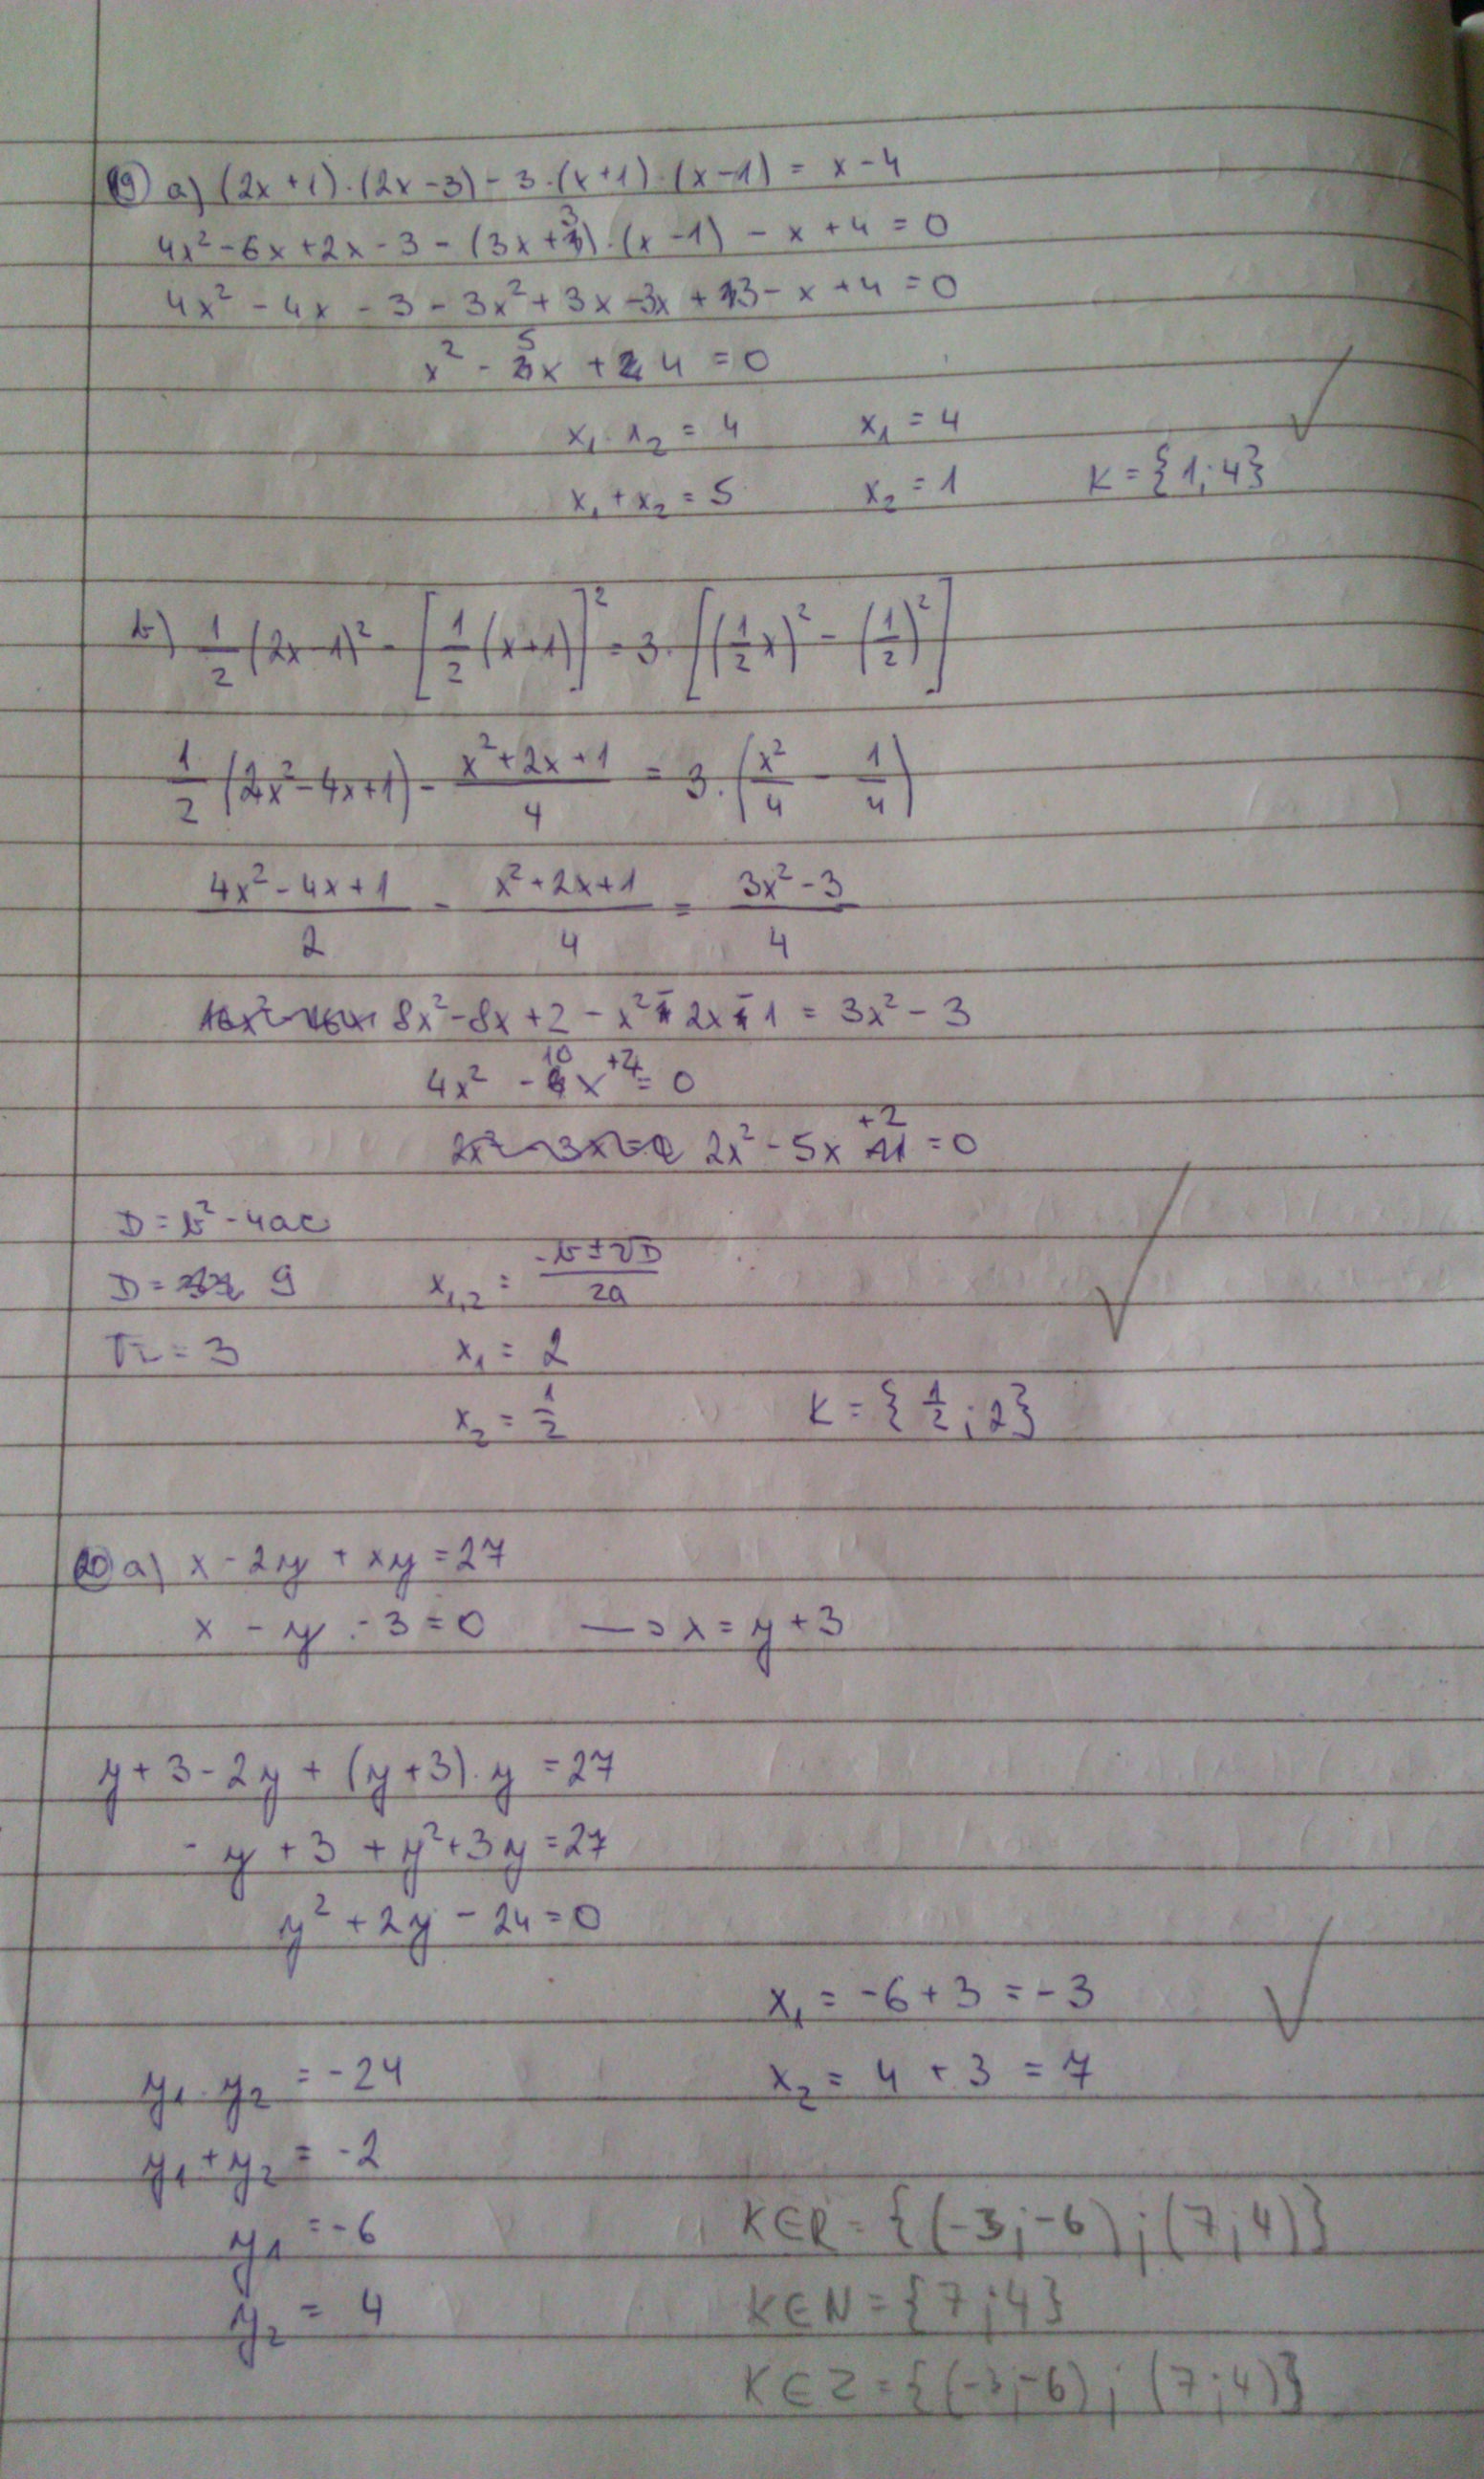 19) a) (2x+1)·(2x-3) - 3·(x+1)·(x-1) = x-4
4x² - 6x + 2x - 3 - (3x+3)·(x-1) - x + 4 = 0
4x² - 4x - 3 - 3x² + 3x - 3x + 3 - x + 4 = 0
x² - 5x + 4 = 0
x₁·x₂ = 4 x₁ = 4
x₁ + x₂ = 5 x₂ = 1 K = {1; 4}
b) 1/2 (2x-1)² - [1/2 (x+1)]² = 3·[(1/2 x)² - (1/2)²]
1/2 (4x² - 4x + 1) - (x² + 2x + 1)/4 = 3·(x²/4 - 1/4)
(4x² - 4x + 1)/2 - (x² + 2x + 1)/4 = (3x² - 3)/4
8x² - 8x + 2 - x² - 2x - 1 = 3x² - 3
4x² - 10x + 4 = 0
2x² - 5x + 2 = 0
D = b² - 4ac
D = 9 x₁,₂ = (-b ± √D)/2a
√ = 3 x₁ = 2
x₂ = 1/2 K = {1/2; 2}
20) a) x - 2y + xy = 27
x - y - 3 = 0 → x = y + 3
y + 3 - 2y + (y+3)·y = 27
- y + 3 + y² + 3y = 27
y² + 2y - 24 = 0
x₁ = -6 + 3 = -3
y₁·y₂ = -24 x₂ = 4 + 3 = 7
y₁ + y₂ = -2
y₁ = -6 K∈R = {(-3; -6); (7; 4)}
y₂ = 4 K∈N = {7; 4}
K∈Z = {(-3; -6); (7; 4)}